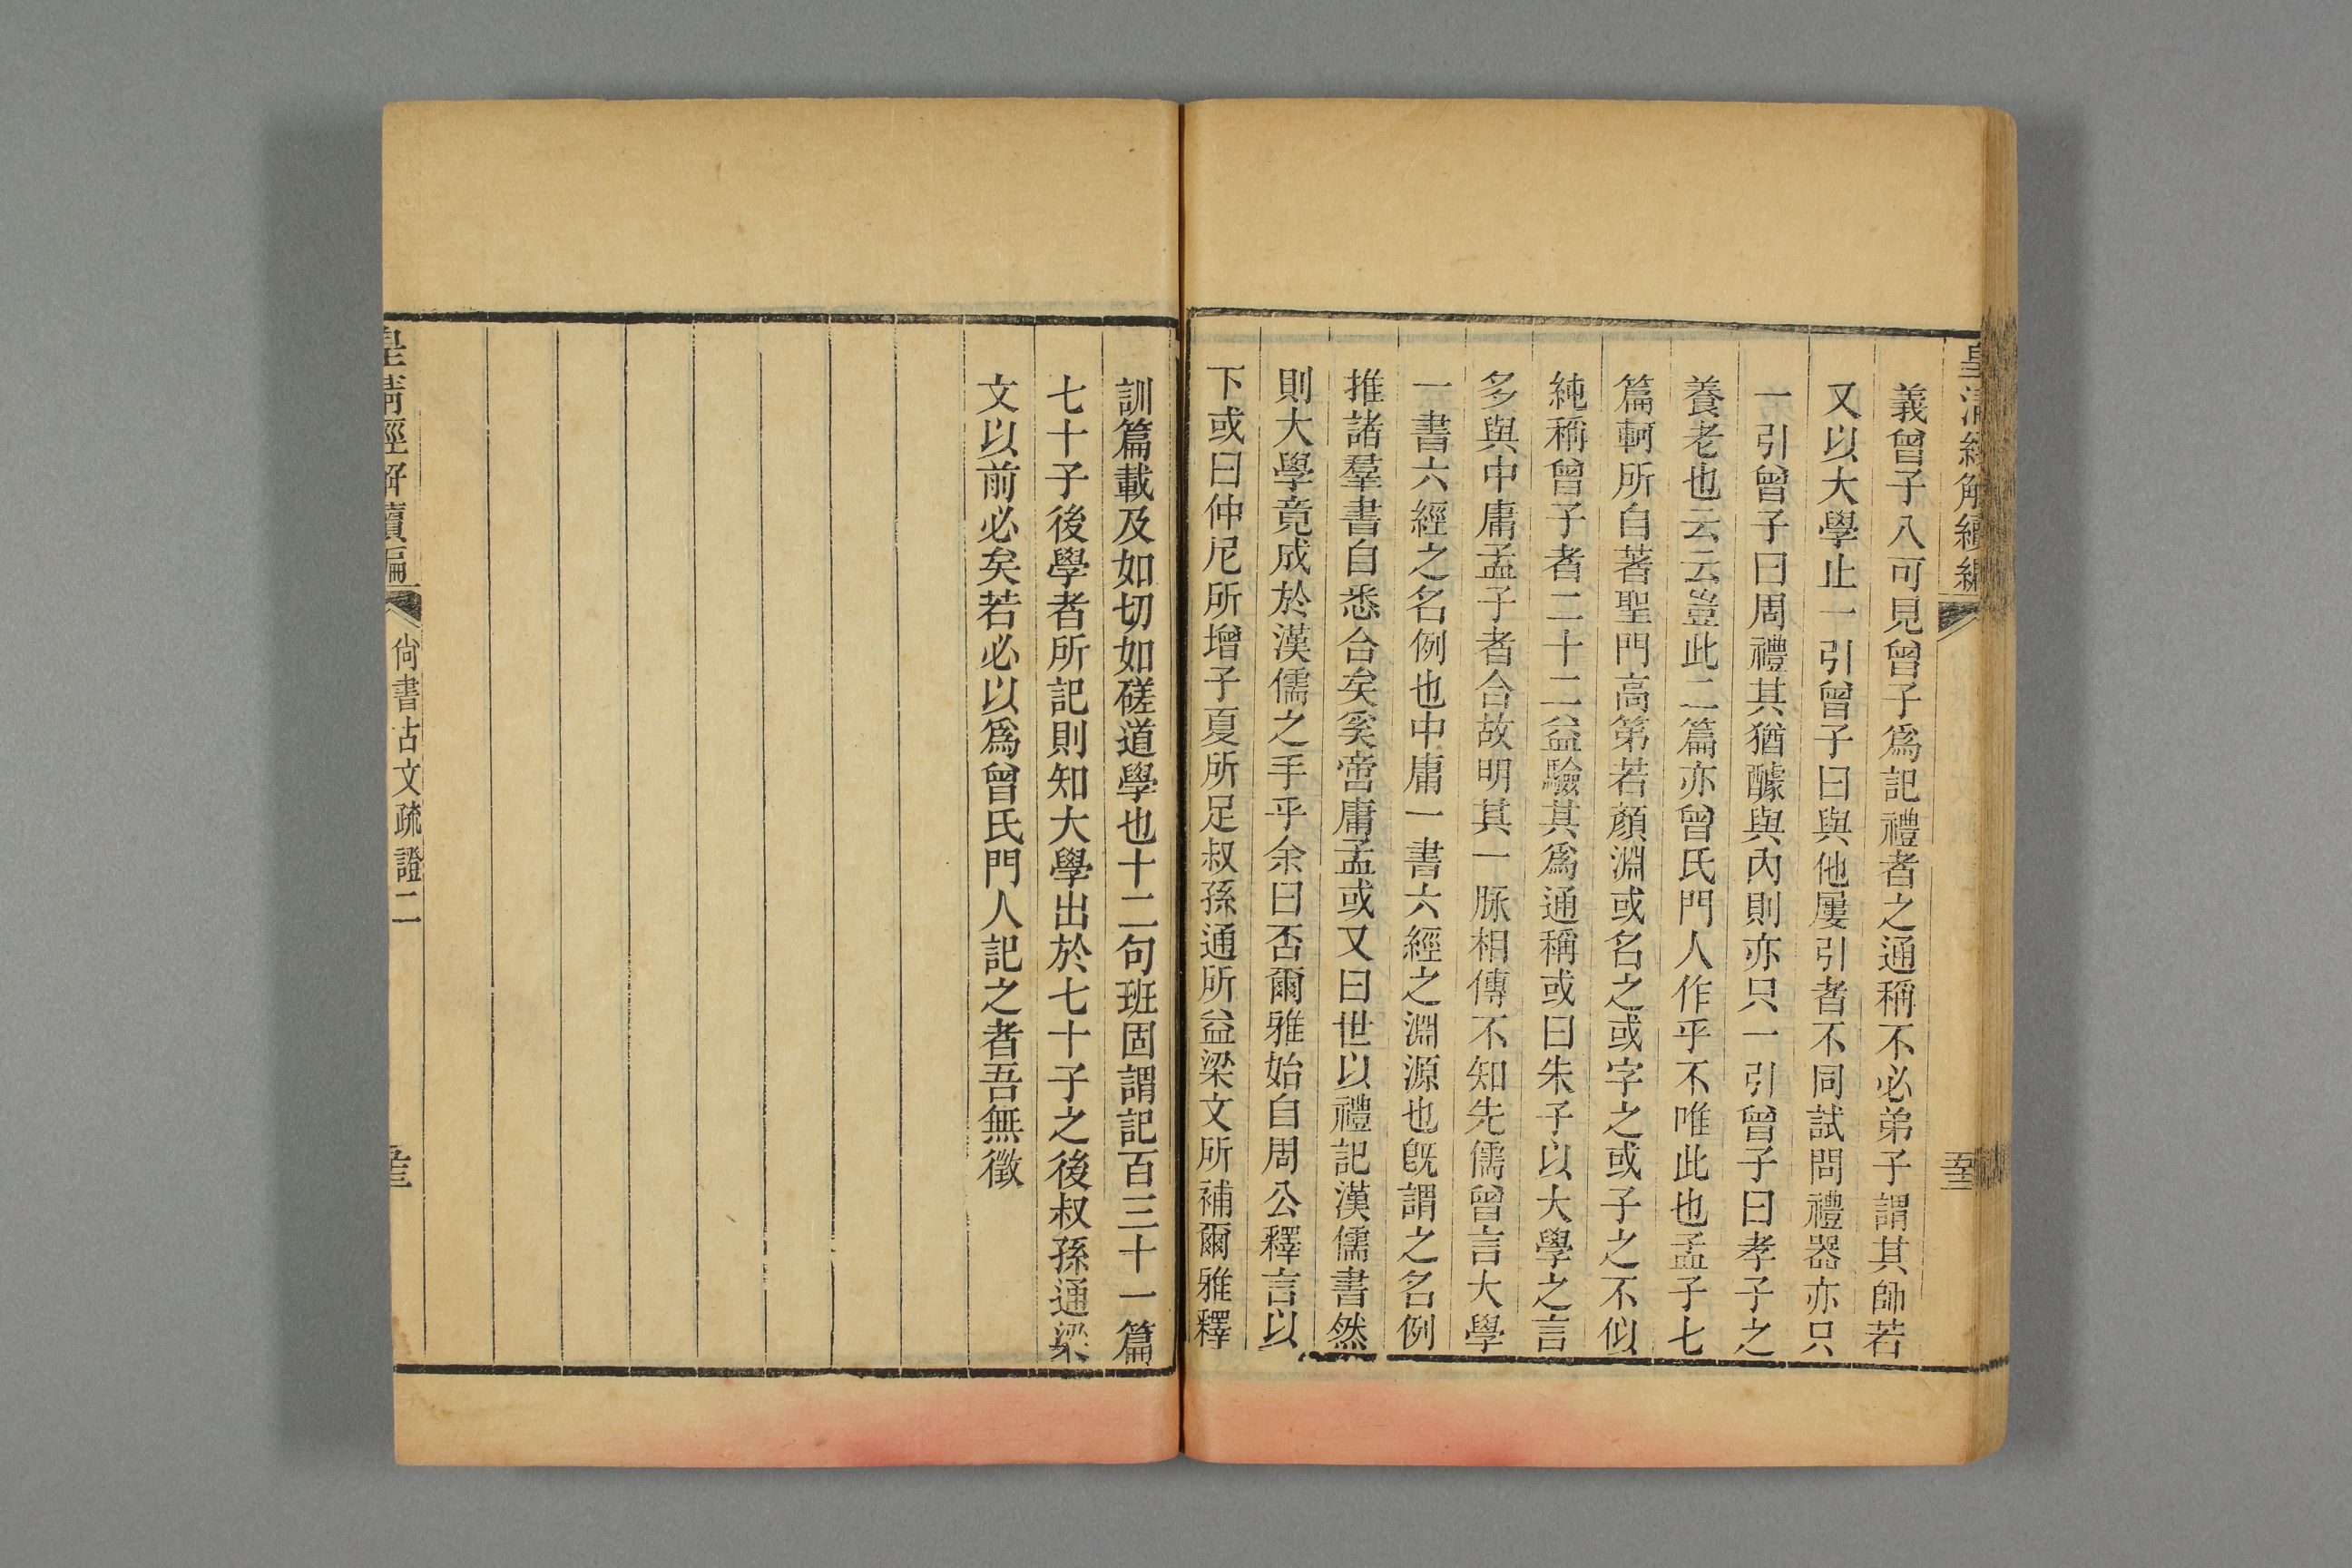 皇清經解續編
五三
義曾子八可見曾子爲記禮者之通稱不必弟子謂其師若
又以大學止一引曾子曰與他屢引者不同試問禮器亦只
一引曾子曰周禮其猶醵與內則亦只一引曾子曰孝子之
養老也云云豈此二篇亦曾氏門人作乎不唯此也孟子七
篇軻所自著聖門高第若顏淵或名之或字之或子之不似
純稱曾子者二十二益驗其爲通稱或曰朱子以大學之言
多與中庸孟子者合故明其一脉相傳不知先儒曾言大學
一書六經之名例也中庸一書六經之淵源也旣謂之名例
推諸羣書自悉合矣奚啻庸孟或又曰世以禮記漢儒書然
則大學竟成於漢儒之手乎余曰否爾雅始自周公釋言以
下或曰仲尼所增子夏所足叔孫通所益梁文所補爾雅釋
訓篇載及如切如磋道學也十二句班固謂記百三十一篇
七十子後學者所記則知大學出於七十子之後叔孫通梁
文以前必矣若必以爲曾氏門人記之者吾無徵
皇清經解續編
尙書古文疏證二
五三